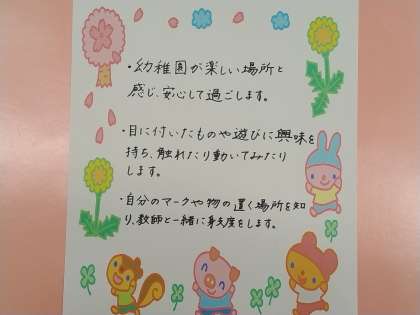 ・幼稚園が楽しい場所と
感じ、安心して過ごします。
・目に付いたものや遊びに興味を
持ち、触れたり動いてみたり
します。
・自分のマークや物の置く場所を知
り、教師と一緒に身支度をします。